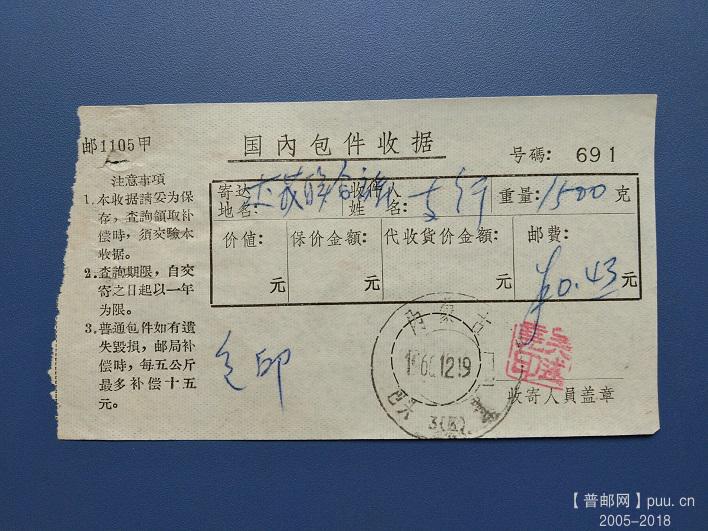 邮1105甲
国內包件收据
号碼: 691
注意事項
1.本收据請妥为保
存,查詢領取补
偿时,须交驗本
收据。
2.查詢期限,自交
寄之日起以一年
为限。
3.普通包件如有遺
失毀損,邮局补
偿时,每五公斤
最多补偿十五
元。
寄达
地名:
收件人
姓 名: 支行
重量: 1500 克
价値: 元
保价金額: 元
代收貨价金額: 元
邮費: ¥0.43 元
内蒙古
12 19
3(区)
收寄人員盖章
【普邮网】puu.cn
2005-2018